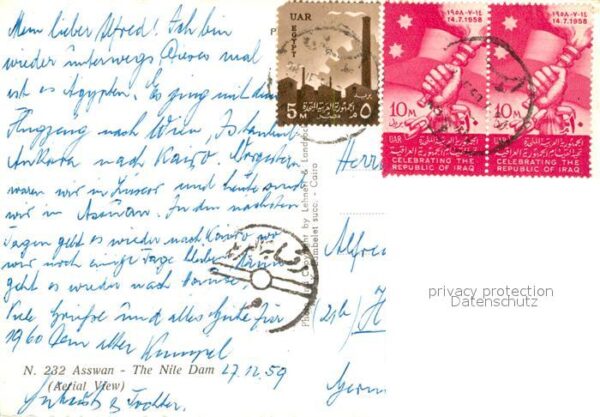 Mein lieber Alfred! Ich bin
wieder unterwegs. Dieses mal
ist es Ägypten. Es ging mit dem
Flugzeug nach Wien, Istanbul
Ankara nach Kairo. Vorgestern
waren wir in Luxor und heute sind
wir in Assuan. In den nächsten
Tagen geht es wieder nach Kairo wo
wir noch einige Tage bleiben. Dann
geht es wieder nach Hause
Viele Grüße und alles Gute für
1960 Dein alter
Kumpel
N. 232 Asswan - The Nile Dam
(Aerial View)
27.12.59
& Tochter.
Copyright by Lehnert & Landrock
succ. - Cairo
UAR
EGYPT
5 M
٥
الجمهورية العربية المتحدة
مصر
١٤-٧-١٩٥٨
14.7.1958
10 M
UAR
الجمهورية العربية المتحدة
CELEBRATING THE
REPUBLIC OF IRAQ
١٤-٧-١٩٥٨
14.7.1958
10 M
الجمهورية العربية المتحدة
CELEBRATING THE
REPUBLIC OF IRAQ
Herrn
Alfred
privacy protection
Datenschutz